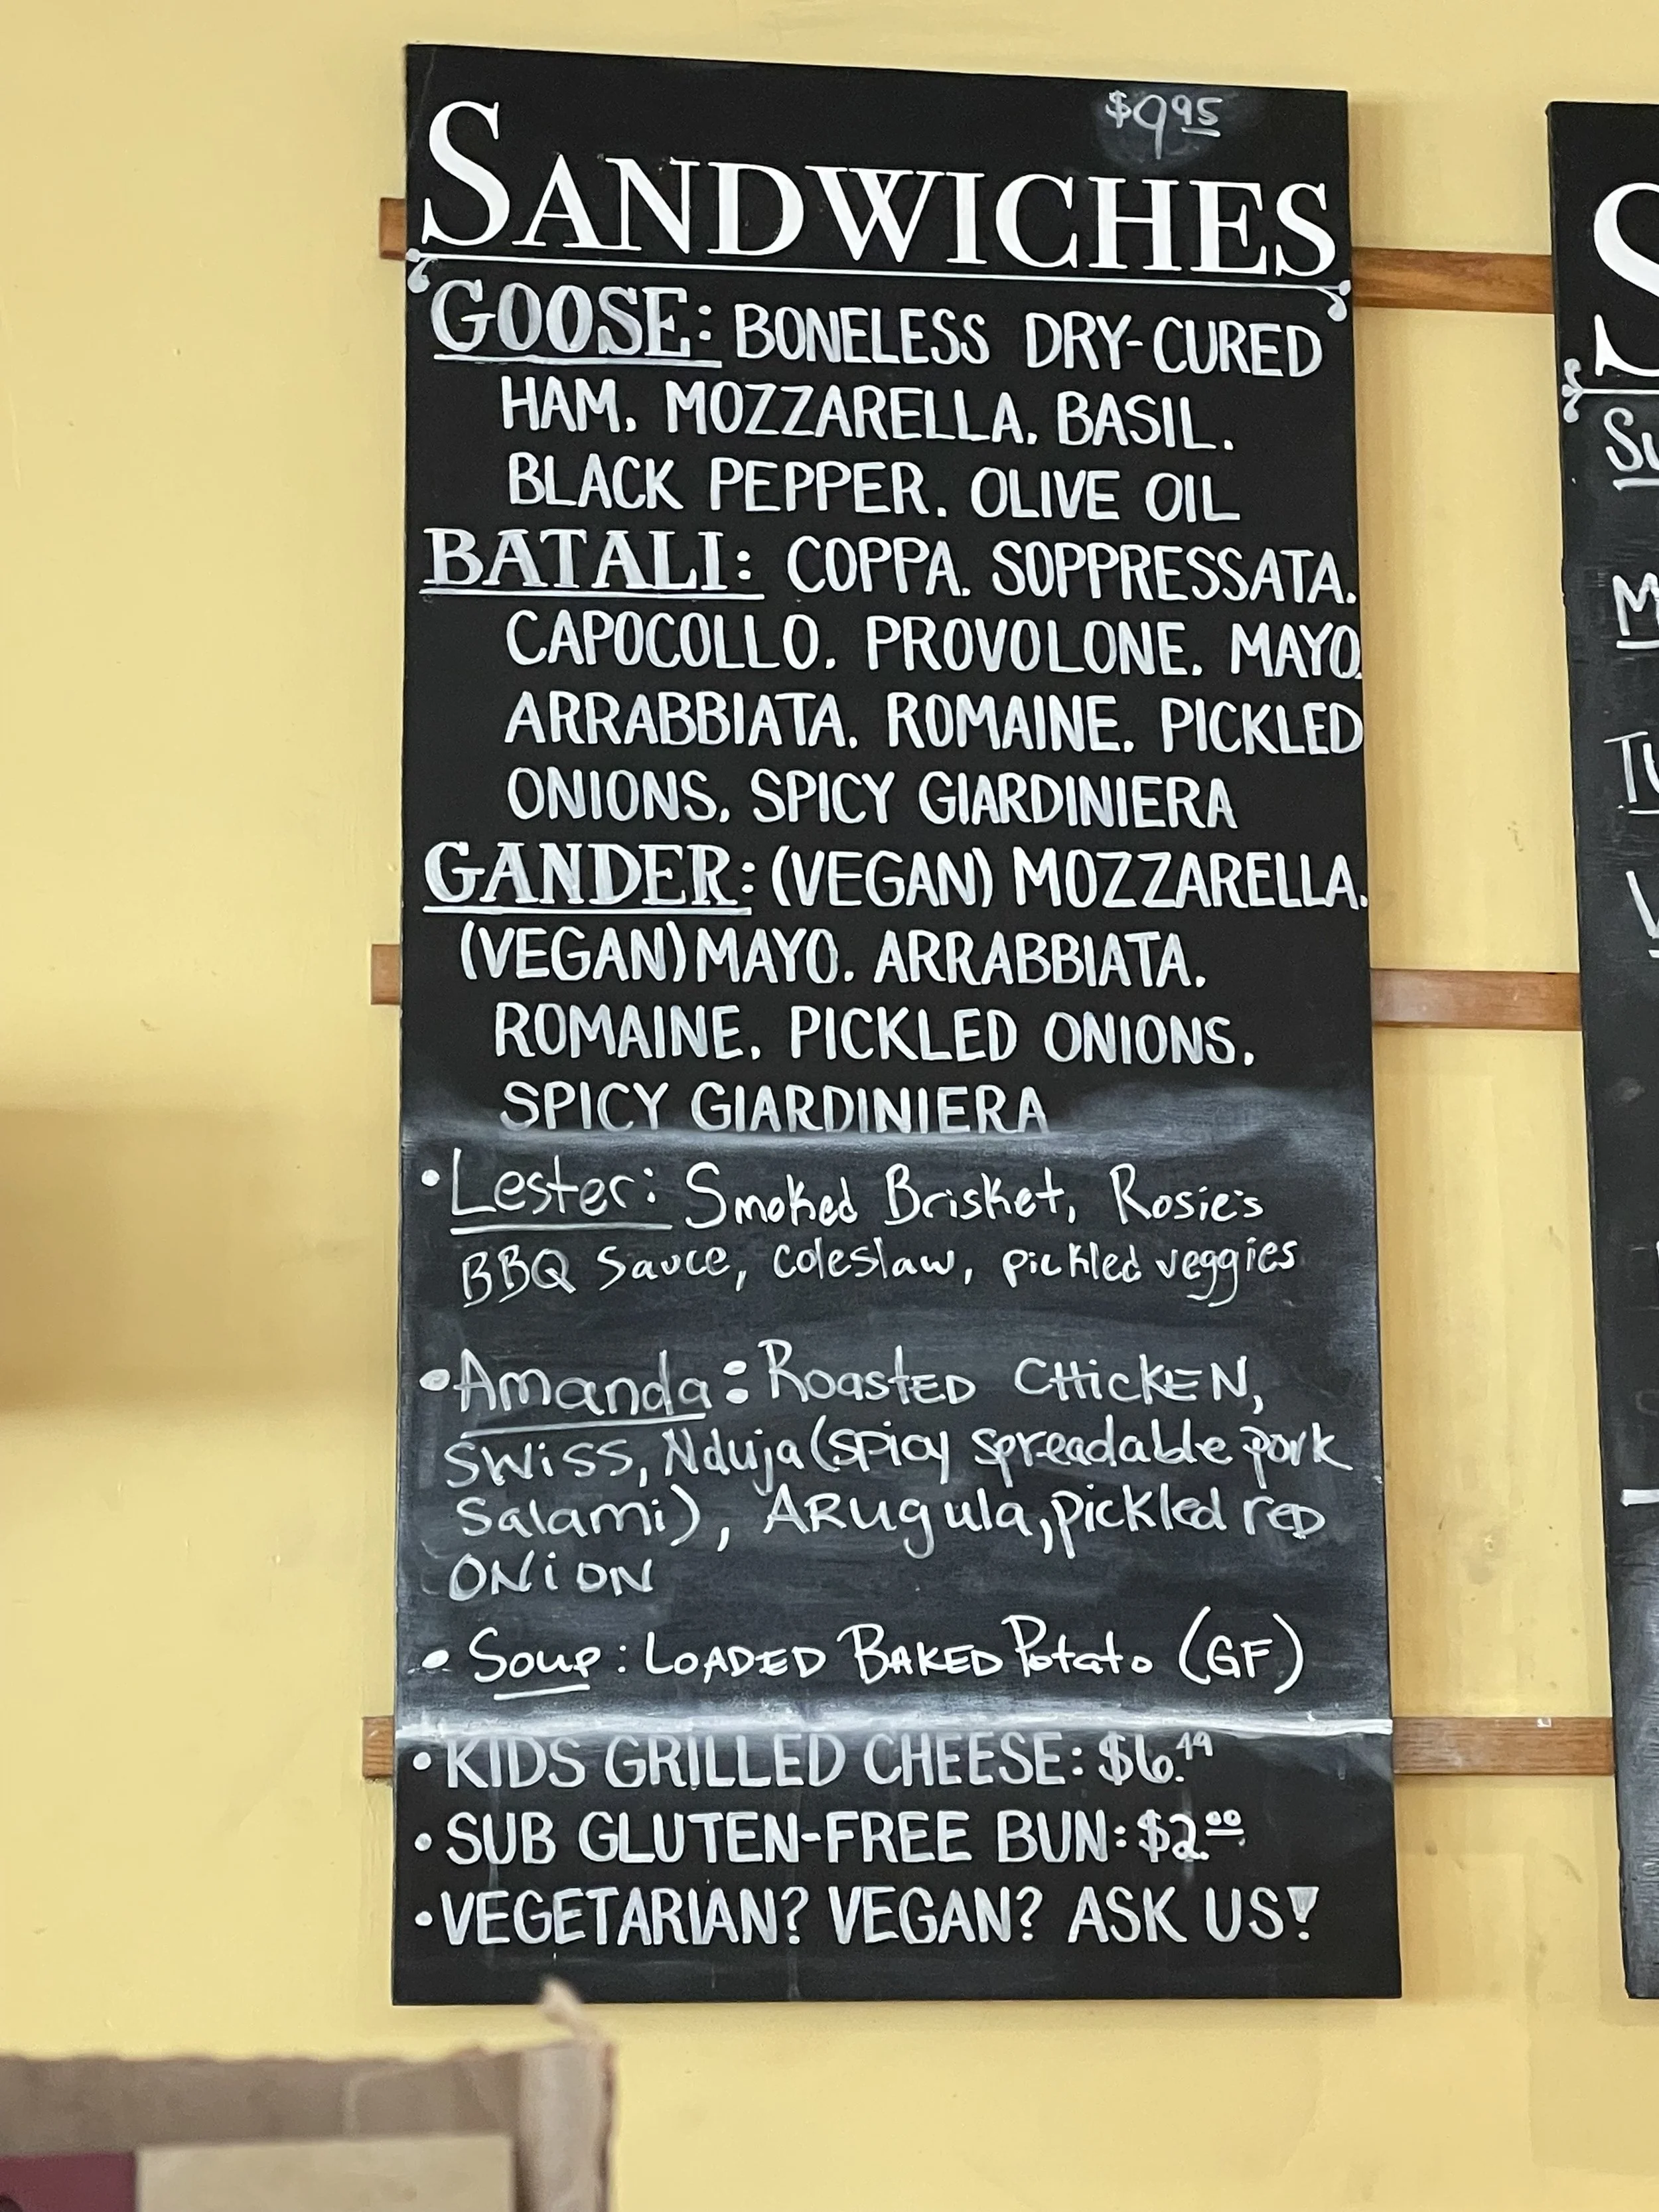 $9.95
SANDWICHES
GOOSE: BONELESS DRY-CURED
HAM. MOZZARELLA. BASIL.
BLACK PEPPER. OLIVE OIL
BATALI: COPPA. SOPPRESSATA.
CAPOCOLLO. PROVOLONE. MAYO.
ARRABBIATA. ROMAINE. PICKLED
ONIONS. SPICY GIARDINIERA
GANDER: (VEGAN) MOZZARELLA.
(VEGAN) MAYO. ARRABBIATA.
ROMAINE. PICKLED ONIONS.
SPICY GIARDINIERA
• Lester: Smoked Brisket, Rosie's
BBQ Sauce, coleslaw, pickled veggies
• Amanda: ROASTED CHICKEN,
SWISS, Nduja (spicy spreadable pork
Salami), ARugula, pickled red
ONION
• Soup: LOADED BAKED Potato (GF)
• KIDS GRILLED CHEESE: $6.49
• SUB GLUTEN-FREE BUN: $2.00
• VEGETARIAN? VEGAN? ASK US!